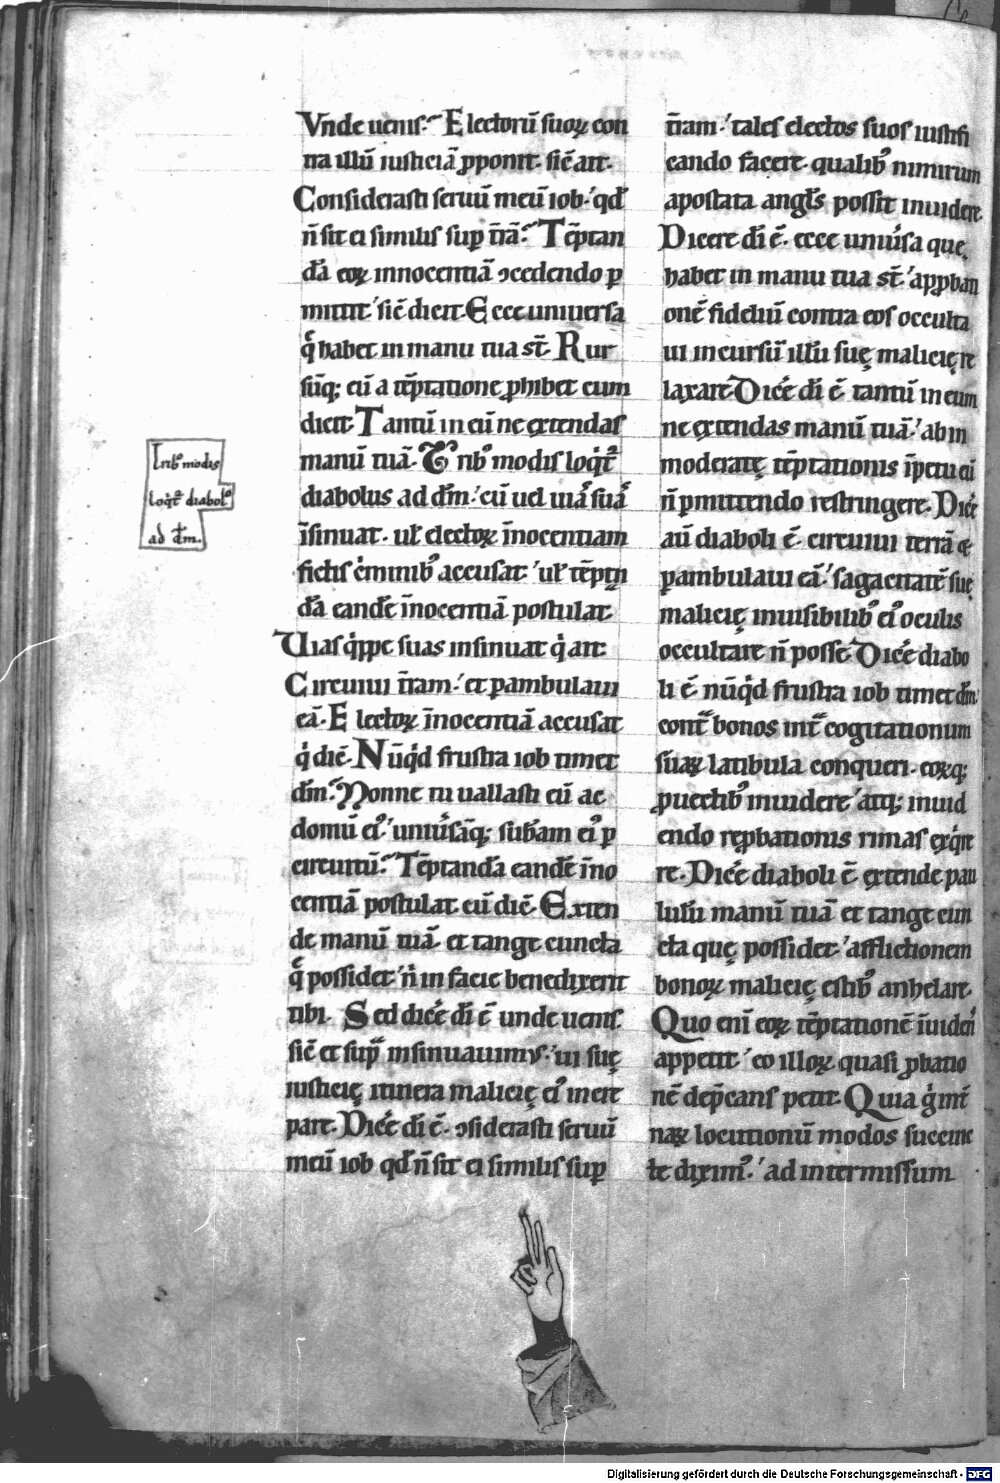 Vnde uenis. Electorũ suoꝝ con
tra illũ iusticiã ꝓponit. sic̃ ait.
Considerasti seruũ meũ iob. qđ
ñ sit ei similis suꝑ t̃rã. Tẽptan
dã eoꝝ innocentiã ꝯcedendo ꝑ
mittit. sic̃ dicit. Ecce uniuersa
q̃ habet in manu tua st̃. Rur
sũq; eũ a tẽptatione ꝓhibet cum
dicit. Tantũ in eũ ne extendas
manũ tuã. Trib᷒ modis loqͥt᷑
diabolus ad dm̃. cũ uel uiã suã
ĩsinuat. ul̃ electoꝝ ĩnocentiam
fictis cͥminib᷒ accusat. ul̃ tẽptan
dã eandẽ ĩnocentiã postulat.
Vias qͥppe suas insinuat qͥ ait.
Circuiui t̃ram. et ꝑambulaui
eã. Electoꝝ ĩnocentiã accusat
qͥ dic̃. Nũqͥd frustra iob timet
dm̃. Nonne tu uallasti eũ ac
domũ ei᷒. uniũsãq; subãm ei᷒ ꝑ
circuitũ. Tẽptandã eandẽ ĩno
centiã postulat cũ dic̃. Exten
de manũ tuã et tange cuncta
q̃ possidet. ñ in facie benedixerit
tibi. Sed dicẽ dĩ ẽ unde uenis.
sic̃ et supͣ insinuauimus. ui suę
iusticię itinera malicię ei᷒ incre
pare. Dicẽ dĩ ẽ. ꝯsiderasti seruũ
meũ iob qđ ñ sit ei similis suꝑ
t̃ram. tales electos suos iustifi
cando facere. qualib᷒ nimirum
apostata angl̃s possit inuidere.
Dicere dĩ ẽ. ecce uniũsa que
habet in manu tua st̃. ad ꝓbati
onẽ fideliũ contra eos occulta
ui incursũ illũ suę malicię re
laxare. Dicẽ dĩ ẽ tantũ in eum
ne extendas manũ tuã. ab in
moderatę tẽptationis ĩpetu eũ
ñ ꝑmittendo restringere. Dicẽ
aũ diaboli ẽ. circuiui terrã et
ꝑambulaui eã. sagacitatẽ suę
malicię inuisibilib᷒ ei᷒ oculis
occultare ñ posse. Dicẽ diabo
li ẽ nũqͥd frustra iob timet dm̃.
contͣ bonos intͣ cogitationum
suaꝝ latibula conqueri. eoꝝq;
ꝓuectib᷒ inuidere. atq; inuid
endo reꝓbationis rimas exqͥre
re. Dicẽ diaboli ẽ. extende pau
lulũ manũ tuã et tange cun
cta quę possidet. afflictionem
bonoꝝ malicię estib᷒ anhelare.
Quo eni eoꝝ tẽptationẽ ĩuidens
appetit. eo illoꝝ quasi ꝓbatio
nẽ dep̃cans petit. Quia gͥ int̃
naꝝ locutionũ modos succinc
te dixim᷒. ad intermissum
Trib᷒ modis
loqͥt᷑ diabol᷒
ad dm̃.
Digitalisierung gefördert durch die Deutsche Forschungsgemeinschaft - DFG